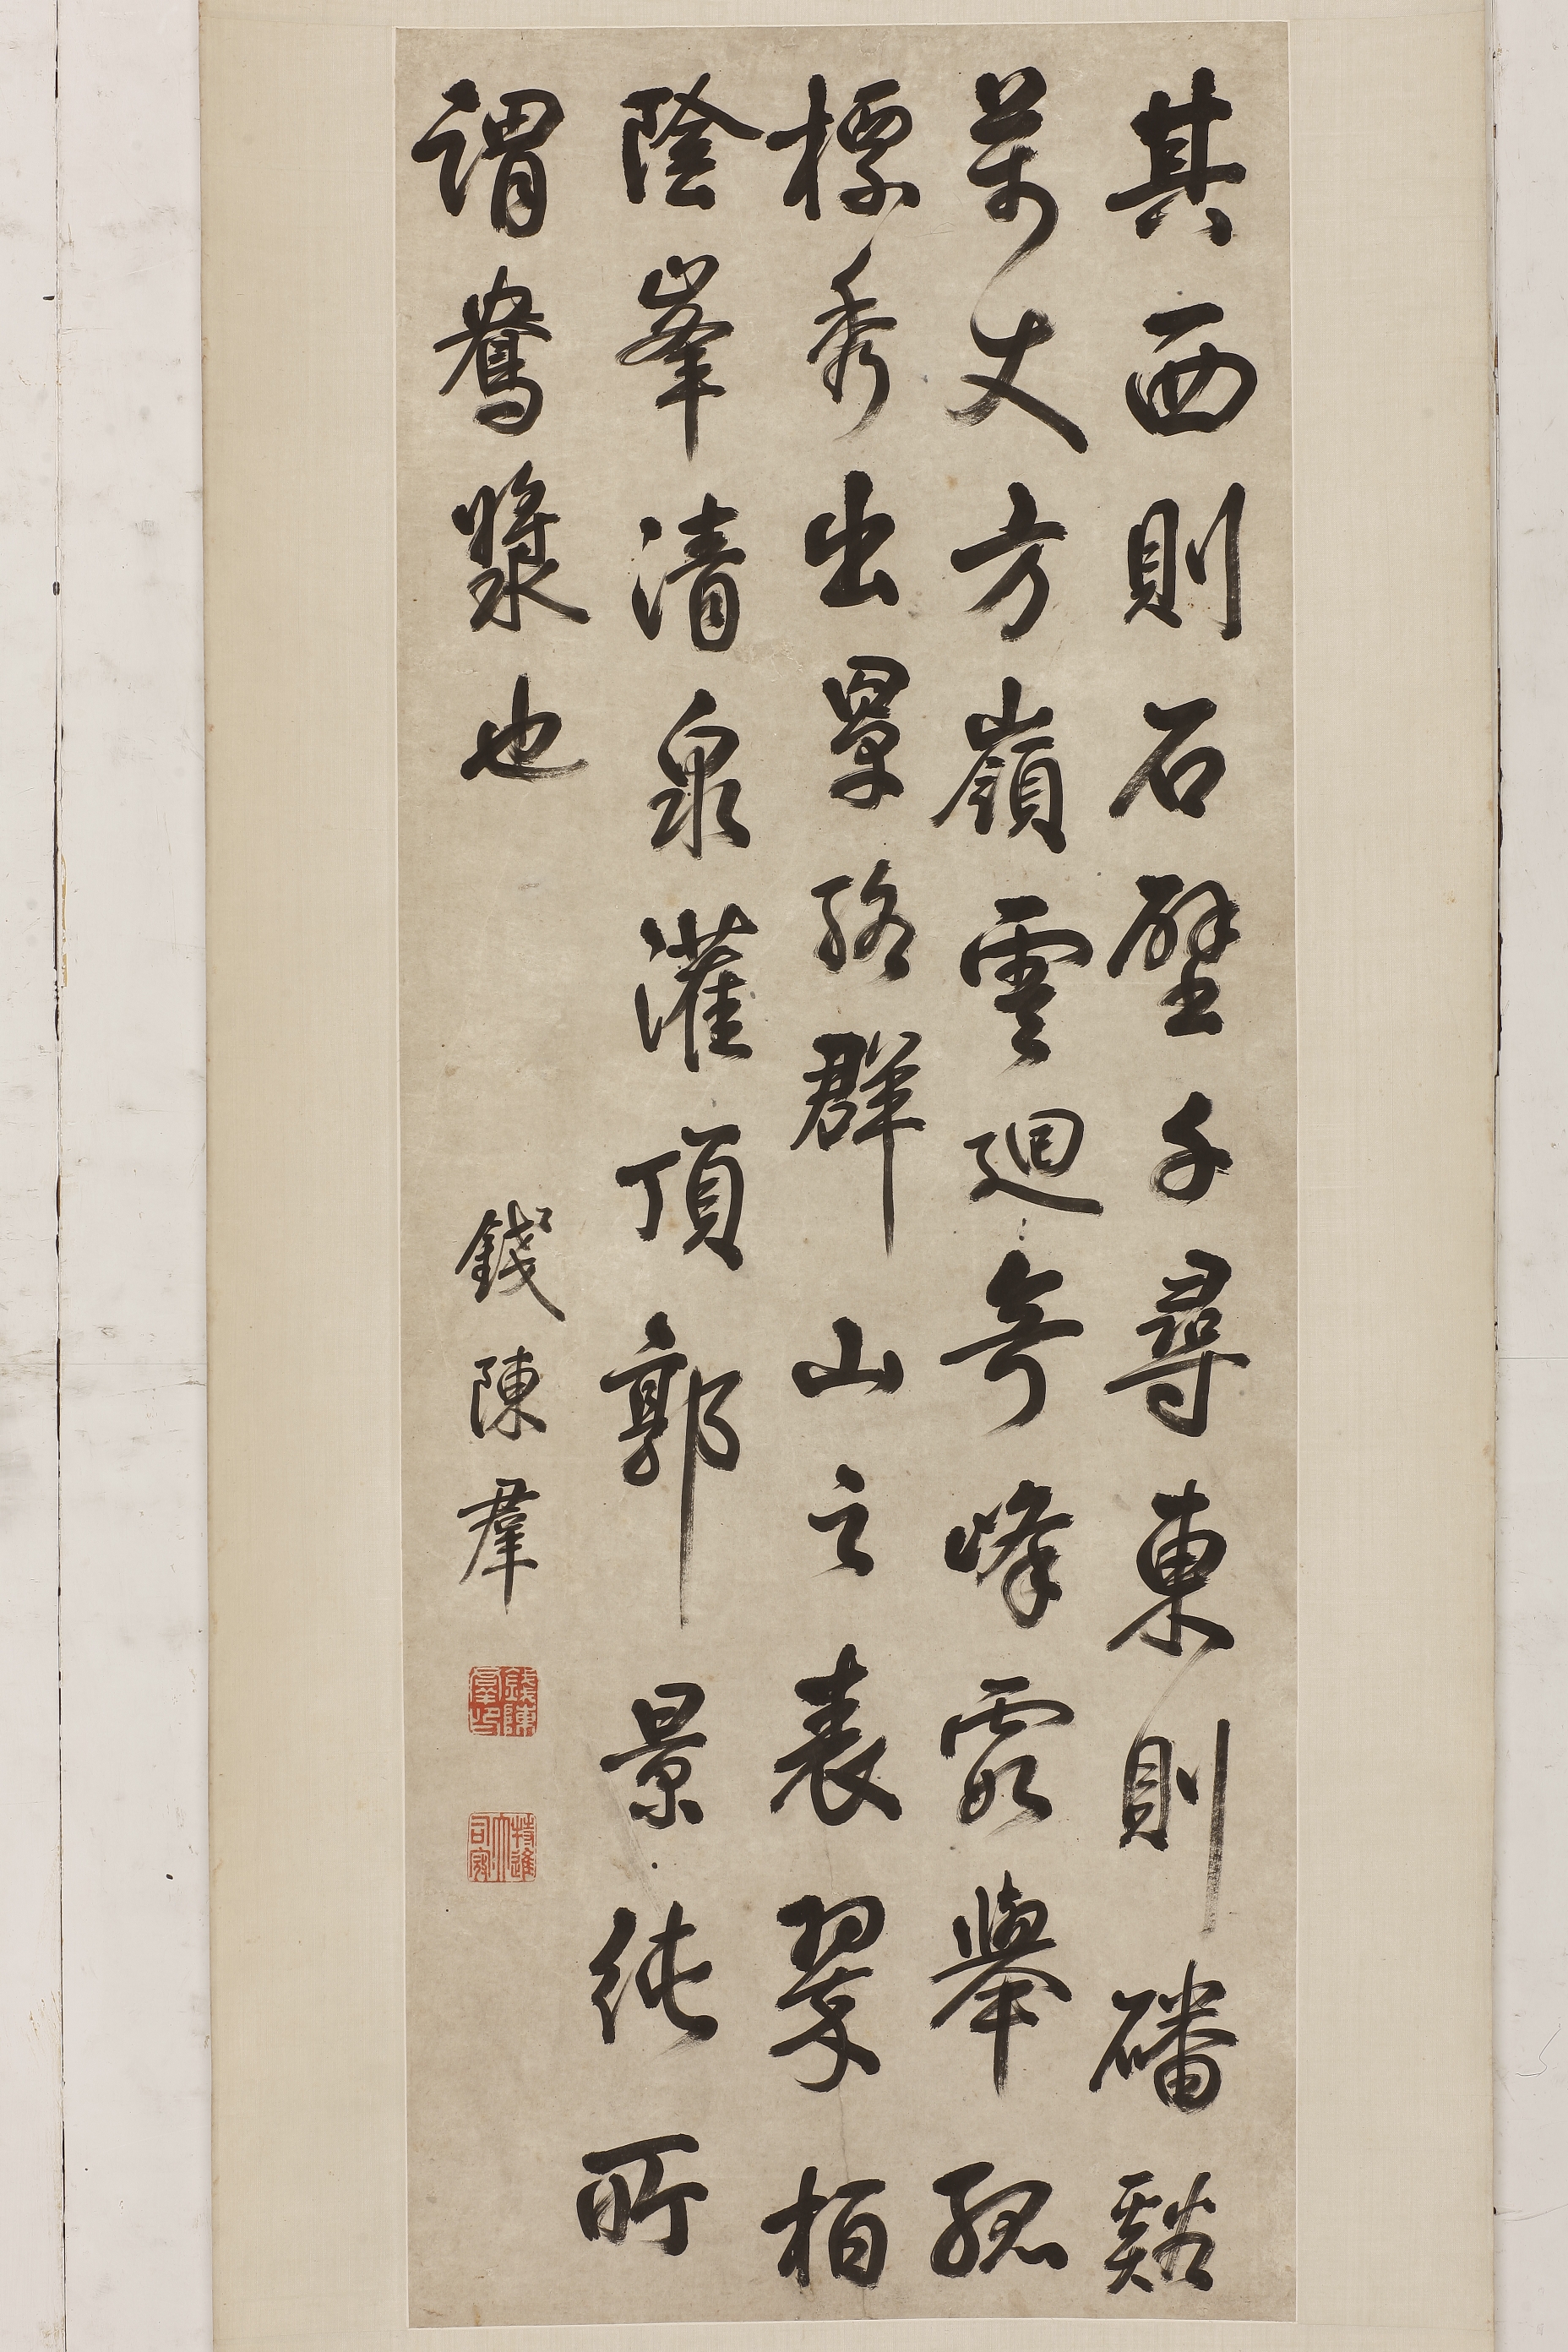 其西則石壁千尋東則磻谿
萬丈方嶺雲迴奇峰霞舉孤
標秀出罩絡群山之表翠柏
陰峯清泉灌頂郭景純所
謂鴦漿也
錢陳羣
錢陳羣印
特進大司寇